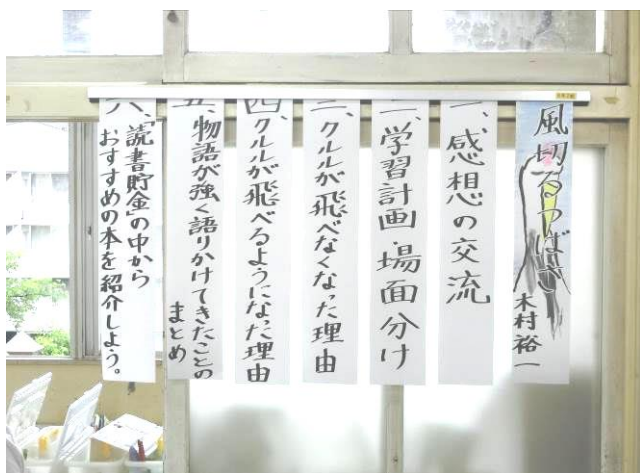 風切るつばさ
木村裕一
一、感想の交流
二、学習計画・場面分け
三、クルルが飛べなくなった理由
四、クルルが飛べるようになった理由
五、物語が強く語りかけてきたことの
まとめ
六、「読書貯金」の中から
おすすめの本を紹介しよう。